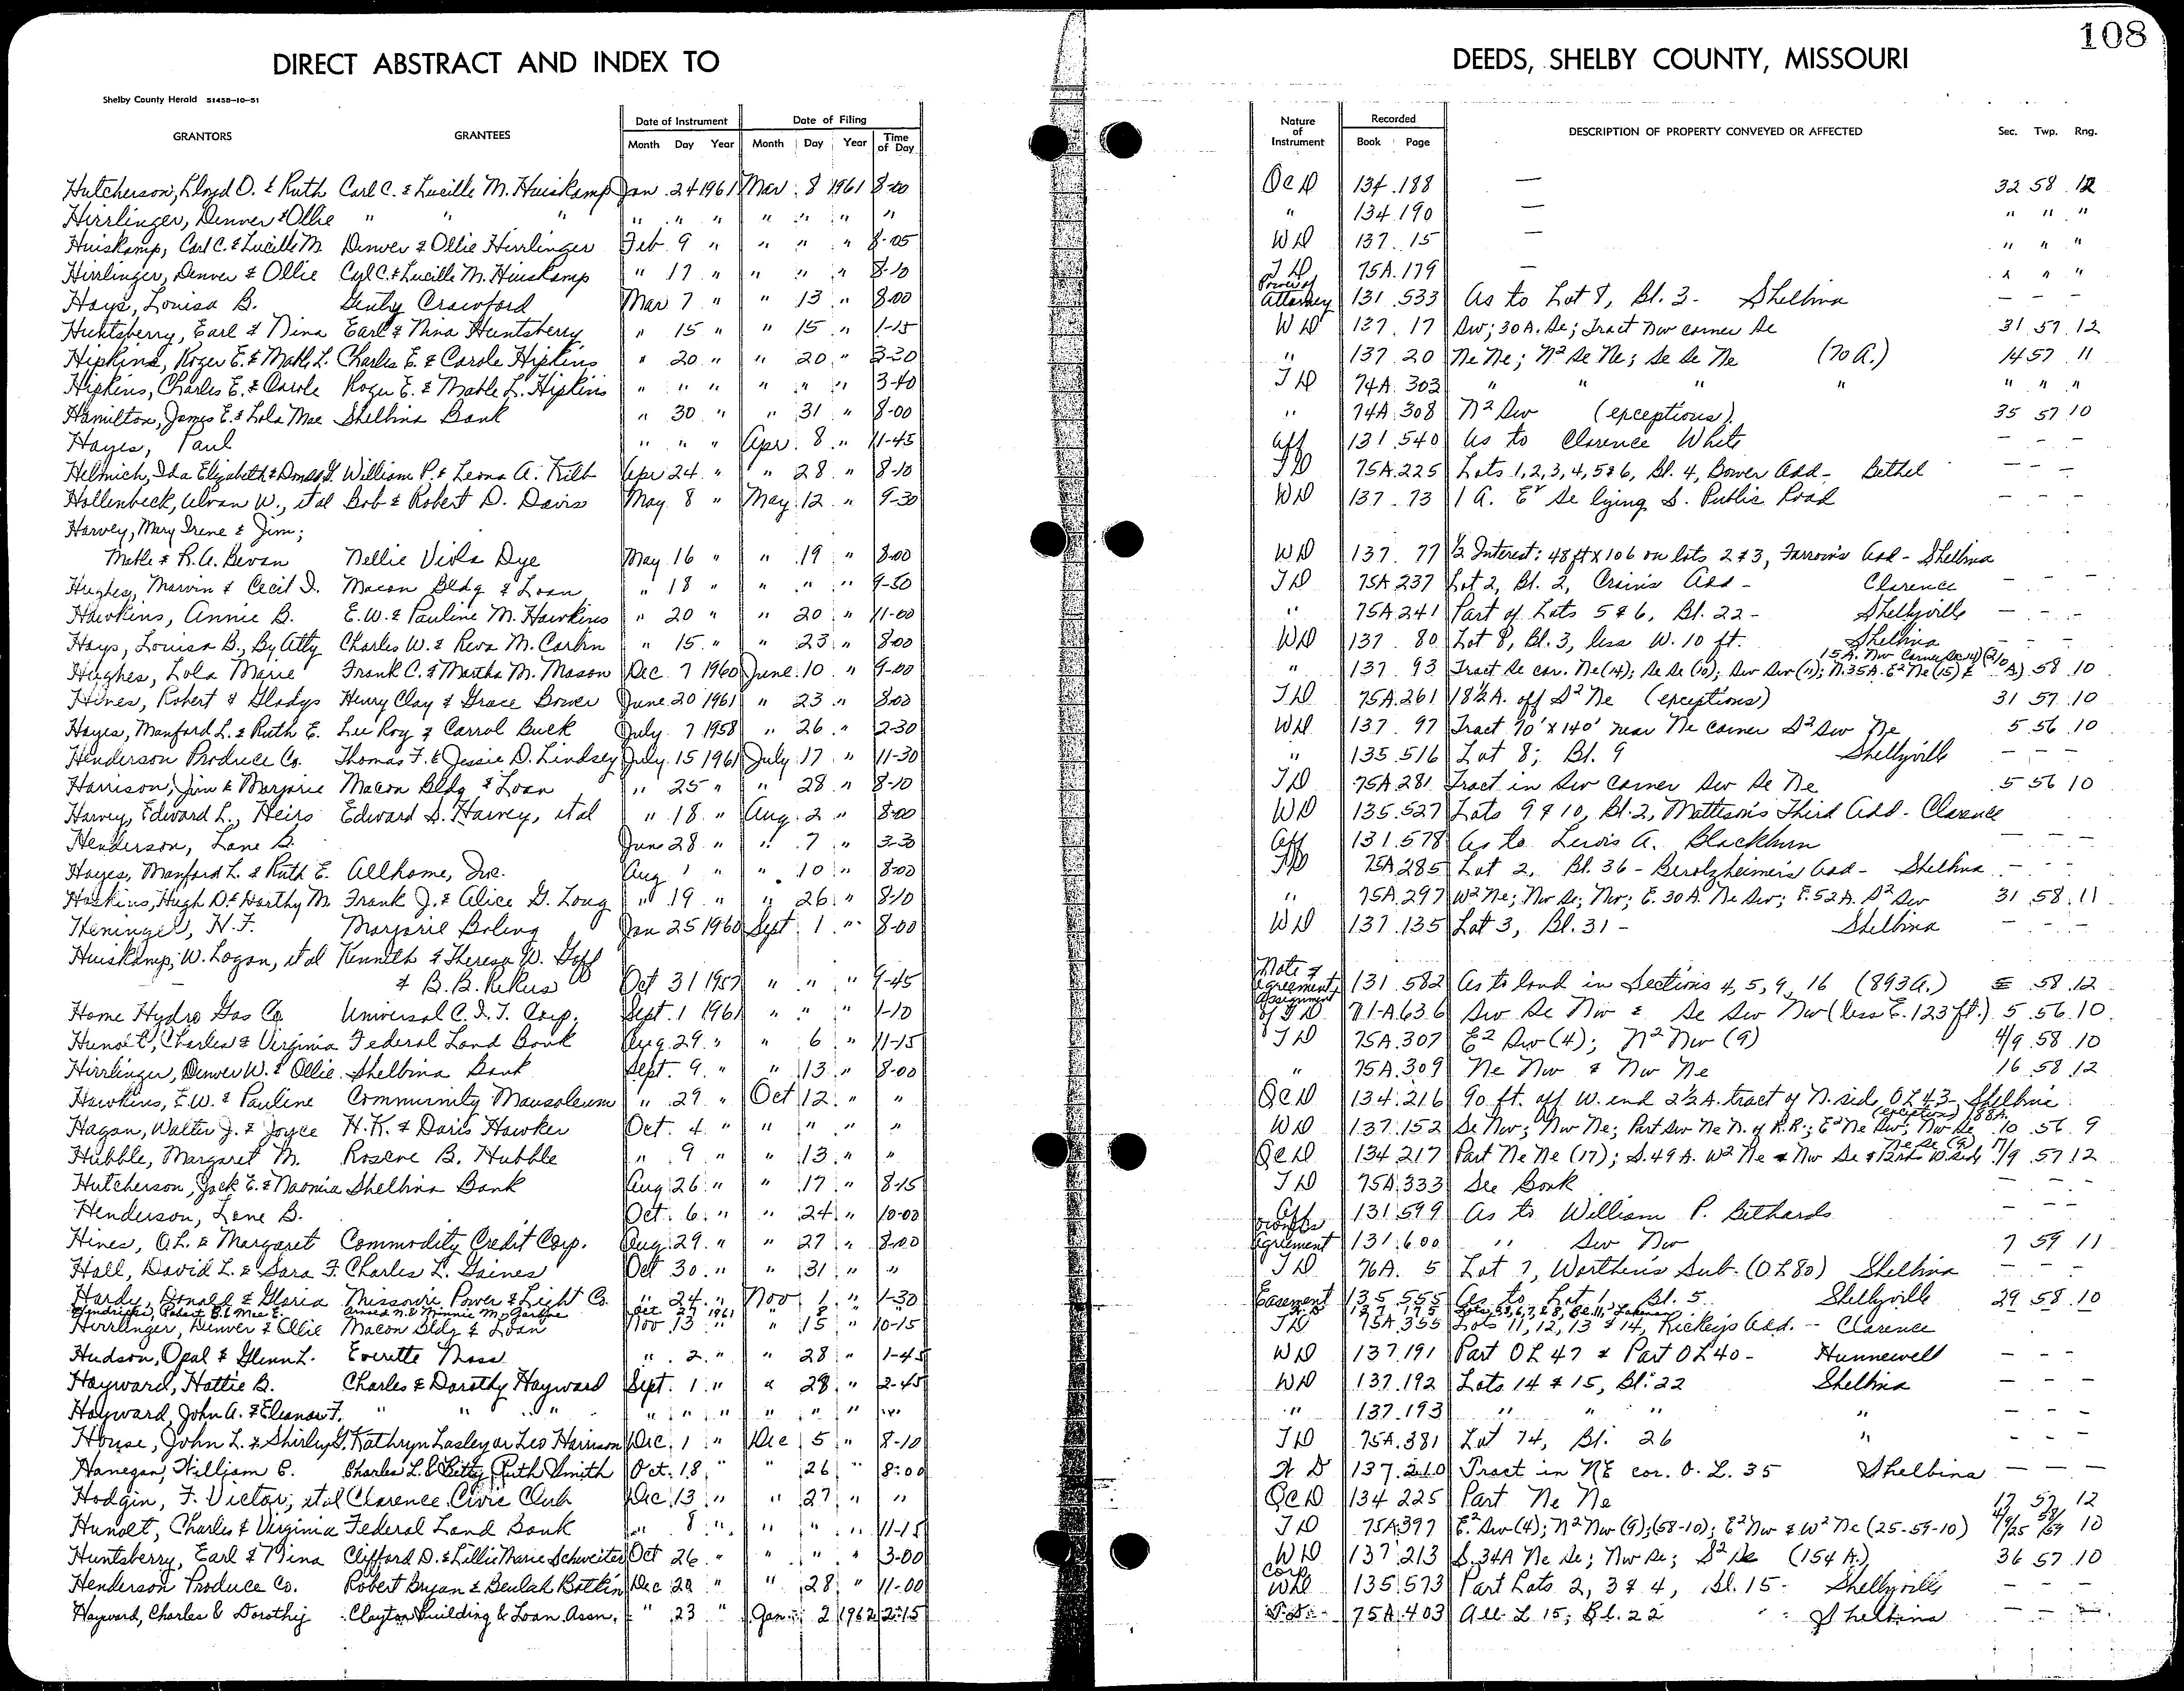 108
DIRECT ABSTRACT AND INDEX TO DEEDS, SHELBY COUNTY, MISSOURI
Shelby County Herald 51458-10-51
GRANTORS GRANTEES Date of Instrument Month Day Year Date of Filing Month Day Year Time of Day Nature of Instrument Recorded Book Page DESCRIPTION OF PROPERTY CONVEYED OR AFFECTED Sec. Twp. Rng.
Hutcherson, Lloyd O. & Ruth Carl C. & Lucille M. Huiskamp Jan 24 1961 Mar 8 1961 8-00 QCD 134 188 — 32 58 12
Hirrlinger, Denver & Ollie " " " " " " " " " " " 134 190 — " " "
Huiskamp, Carl C. & Lucille M. Denver & Ollie Hirrlinger Feb 9 " " " " 8-05 WD 137 15 — " " "
Hirrlinger, Denver & Ollie Carl C. & Lucille M. Huiskamp " 17 " " " " 8-10 TD 75A 179 — " " "
Hays, Louisa B. Crawford Mar 7 " " 13 " 8-00 Power of Attorney 131 533 As to Lot 8, Bl. 3- Shelbina - - -
Huntsberry, Earl & Nina Earl & Nina Huntsberry " 15 " " 15 " 1-15 WD 137 17 Sw; 30 A. Se; Tract Nw corner Se 31 57 12
Hipkins, Roger E. & Mable L. Charles E. & Carole Hipkins " 20 " " 20 " 3-30 " 137 20 Ne Ne; N2 Se Ne; Se Se Ne (70 A.) 14 57 11
Hipkins, Charles E. & Carole Roger E. & Mable L. Hipkins " " " " " " 3-40 TD 74A 303 " " " " " " "
Hamilton, James E. & Lola Mae Shelbina Bank " 30 " " 31 " 8-00 " 74A 308 N2 Sw (exceptions) 35 57 10
Hayes, Paul " " " Apr 8 " 11-45 Aff 131 540 As to Clarence White - - -
Helmich, Ida Elizabeth & Donald William P. & Leona A. Kilb Apr 24 " " 28 " 8-10 TD 75A 225 Lots 1, 2, 3, 4, 5 & 6, Bl. 4, Bower Add- Bethel - - -
Hollenbeck, Alvan W., et al Bob & Robert D. Davis May 8 " May 12 " 9-30 WD 137 73 1 A. Se lying S. Public Road - - -
Harvey, Mary Irene & Jim;
Mable & R.A. Bevan Nellie Viola Dye May 16 " " 19 " 8-00 WD 137 77 1/2 Interest: 48 ft x 106 on lots 2 & 3, Farrow's Add- Shelbina
Hughes, Marvin & Cecil I. Macon Bldg & Loan " 18 " " " " 9-30 TD 75A 237 Lot 2, Bl. 2, Crain's Add- Clarence - - -
Hawkins, Annie B. E.W. & Pauline M. Hawkins " 20 " " 20 " 11-00 " 75A 241 Part of Lots 5 & 6, Bl. 22- Shelbyville - - -
Hays, Louisa B., By Atty Charles W. & Reva M. Carlin " 15 " " 23 " 8-00 WD 137 80 Lot 8, Bl. 3, less W. 10 ft. Shelbina - - -
Hughes, Lola Marie Frank C. & Martha M. Mason Dec 7 1960 June 10 " 9-00 " 137 93 Tract Se cor. Ne (14); Se Se (10); Sw Sw (11); N. 35A. E2 Ne (15) & 15A. Nw Corner Se 58 10
Hines, Robert & Gladys Henry Clay & Grace Bower June 20 1961 " 23 " 8-00 TD 75A 261 18 1/2 A. off S2 Ne (exceptions) 31 57 10
Hayes, Manford L. & Ruth E. Lee Roy & Carrol Buck July 7 1958 " 26 " 2-30 WD 137 97 Tract 70' x 140' near Ne corner S2 Sw Ne 5 56 10
Henderson Produce Co. Thomas F. & Jessie D. Lindsey July 15 1961 July 17 " 11-30 " 135 516 Lot 8; Bl. 9 Shelbyville - - -
Harrison, Jim & Marjorie Macon Bldg & Loan " 25 " " 28 " 8-10 TD 75A 281 Tract in Sw Corner Sw Se Ne 5 56 10
Harvey, Edward L., Heirs Edward S. Harvey, et al " 18 " Aug. 2 " 8-00 WD 135 527 Lots 9 & 10, Bl. 2, Matteson's Third Add- Clarence
Henderson, Lane B. June 28 " " 7 " 3-30 Aff 131 578 As to Lewis A. Blackburn - - -
Hayes, Manford L. & Ruth E. Allhome, Inc. Aug 1 " " 10 " 8-00 TD 75A 285 Lot 2, Bl. 36- Berolzheimer's Add- Shelbina - - -
Haskins, Hugh D. & Harthy M. Frank J. & Alice G. Long " 19 " " 26 " 8-10 " 75A 297 W2 Ne; Nw Se; Nw; E. 30 A. Ne Sw; E. 52 A. S2 Sw 31 58 11
Heninger, H.F. Marjorie Boling Jan 25 1960 Sept 1 " 8-00 WD 137 135 Lot 3, Bl. 31- Shelbina - - -
Huiskamp, W. Logan, et al Kenneth & Theresa W. Goff
& B.B. Oct 31 1957 " " " 9-45 Note & Agreement 131 582 As to land in Sections 4, 5, 9, 16 (893 A.) 58 12
Home Hydro Gas Co Universal C.I.T. Corp. Sept. 1 1961 " " " 1-10 Assignment of TD 71-A 636 Sw Se Nw & Se Sw Nw (less E. 123 ft.) 5 56 10
Hunolt, Charles & Virginia Federal Land Bank Aug 29 " " 6 " 11-15 TD 75A 307 E2 Sw (4); N2 Nw (9) 4/9 58 10
Hirrlinger, Denver W. & Ollie Shelbina Bank Sept. 9 " " 13 " 8-00 " 75A 309 Ne Nw & Nw Ne 16 58 12
Hawkins, E.W. & Pauline Community Mausoleum " 29 " Oct 12 " " QCD 134 216 90 ft. off W. end 2 1/2 A. tract of N. side OL 43- Shelbina
Hagan, Walter J. & Joyce H.K. & Doris Hawker Oct. 4 " " " " " WD 137 152 Se Nw; Nw Ne; Part Sw Ne N. of R.R.; E2 Ne Sw; Nw Se (exceptions) 188A. 10 56 9
Hubble, Margaret M. Roscoe B. Hubble " 9 " " 13 " " QCD 134 217 Part Ne Ne (17); S. 49 A. W2 Ne & Nw Se & Ne Se (9) 17/9 57 12
Hutcherson, Jack E. & Naomia Shelbina Bank Aug 26 " " 17 " 8-15 TD 75A 333 See Book - - -
Henderson, Lane B. Oct. 6 " " 24 " 10-00 Aff 131 599 As to William P. Bethards - - -
Hines, O.L. & Margaret Commodity Credit Corp. Aug 29 " " 27 " 8-00 Agreement 131 600 " Sw Nw 7 59 11
Hall, David L. & Sara F. Charles L. Gaines Oct 30 " " 31 " " TD 76A 5 Lot 7, Worthen's Sub. (OL 80) Shelbina - - -
Hardy, Donald & Gloria Missouri Power & Light Co. " 24 " Nov 1 " 1-30 Easement 135 555 As to Lot 1, Bl. 5 Shelbyville 29 58 10
Hendricks, Robert B. & Mae E. & Minnie M. Oct 27 1961 " 8 " 137 175 Lakenan
Hirrlinger, Denver & Ollie Macon Bldg & Loan Nov 13 " " 15 " 10-15 TD 75A 355 Lots 11, 12, 13 & 14, Rickey's Add. - Clarence
Hudson, Opal & Glenn L. Everette Moss " 2 " " 28 " 1-45 WD 137 191 Part OL 47 & Part OL 40- Hunnewell - - -
Hayward, Hattie B. Charles & Dorothy Hayward Sept. 1 " " 28 " 2-45 WD 137 192 Lots 14 & 15, Bl. 22 Shelbina - - -
Hayward, John A. & Eleanor F. " " " " " " " " " " " 137 193 " " " " - - -
House, John L. & Shirley G. Kathryn Lasley or Leo Harrison Dec. 1 " Dec 5 " 8-10 TD 75A 381 Lot 74, Bl. 26 " - - -
Hanegan, William C. Charles L. & Betty Ruth Smith Oct. 18 " " 26 " 8:00 W D 137 210 Tract in NE cor. O. L. 35 Shelbina - - -
Hodgin, F. Victor, et al Clarence Civic Club Dec 13 " " 27 " " QCD 134 225 Part Ne Ne 17 57 12
Hunolt, Charles & Virginia Federal Land Bank " 8 " " " " 11-15 TD 75A 397 E2 Sw (4); N2 Nw (9); (58-10); E2 Nw & W2 Ne (25-59-10) 4/9/25 58/59 10
Huntsberry, Earl & Nina Clifford D. & Lillie Marie Schweitzer Oct 26 " " " " 3-00 WD 137 213 S. 34A Ne Se; Nw Se; S2 Se (154 A.) 36 57 10
Henderson Produce Co. Robert Bryan & Beulah Botkin Dec 20 " " 28 " 11-00 Corp WD 135 573 Part Lots 2, 3 & 4, Bl. 15- Shelbyville - - -
Hayward, Charles & Dorothy Clayton Building & Loan Assn. " 23 " Jan 2 1962 2:15 T.D. 75A 403 All L 15; Bl. 22 Shelbina - - -